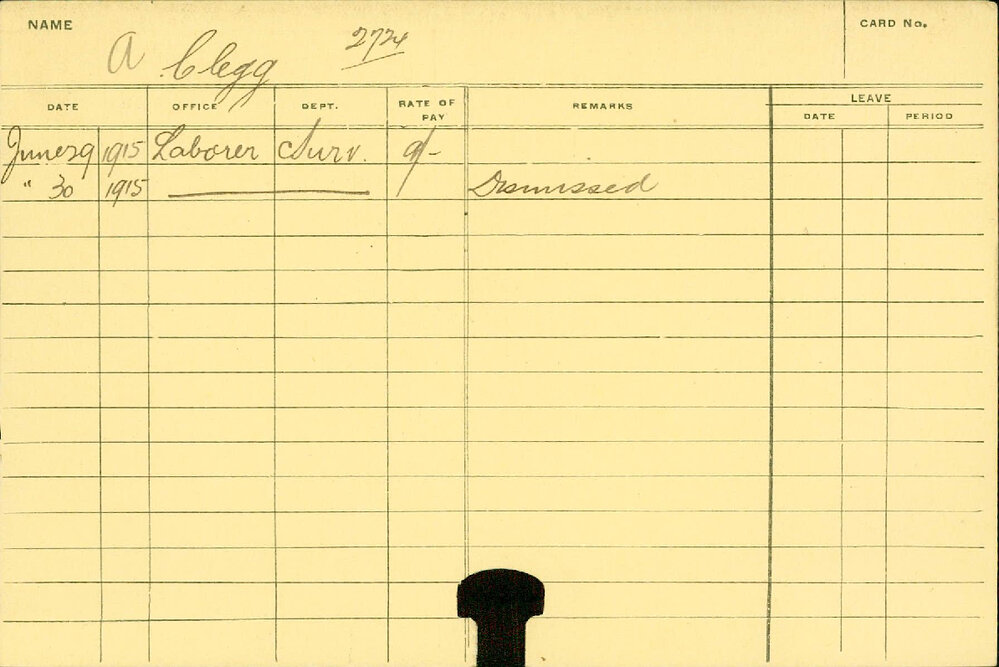 NAME
CARD No.
A Clegg 2724
DATE OFFICE DEPT. RATE OF PAY REMARKS LEAVE
DATE PERIOD
June 29 1915 Laborer Surv. 9/-
" 30 1915 Dismissed